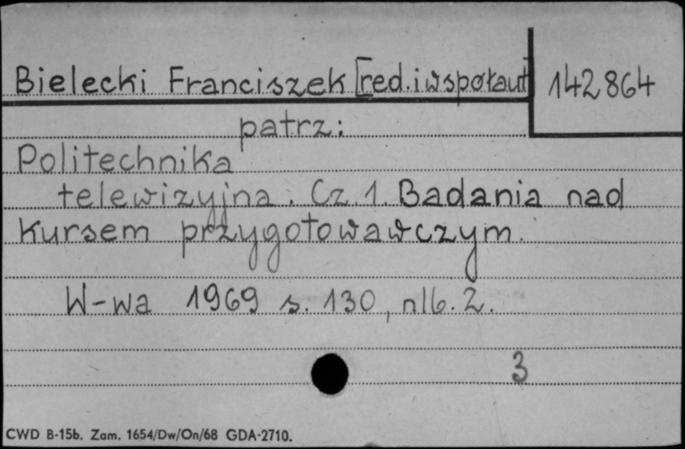 Bielecki Franciszek [red. i współaut 142864
patrz:
Politechnika
telewizyjna. Cz. 1. Badania nad
kursem przygotowawczym.
W-wa 1969 s. 130, nlb. 2.
3
CWD B-15b. Zam. 1654/Dw/On/68 GDA-2710.